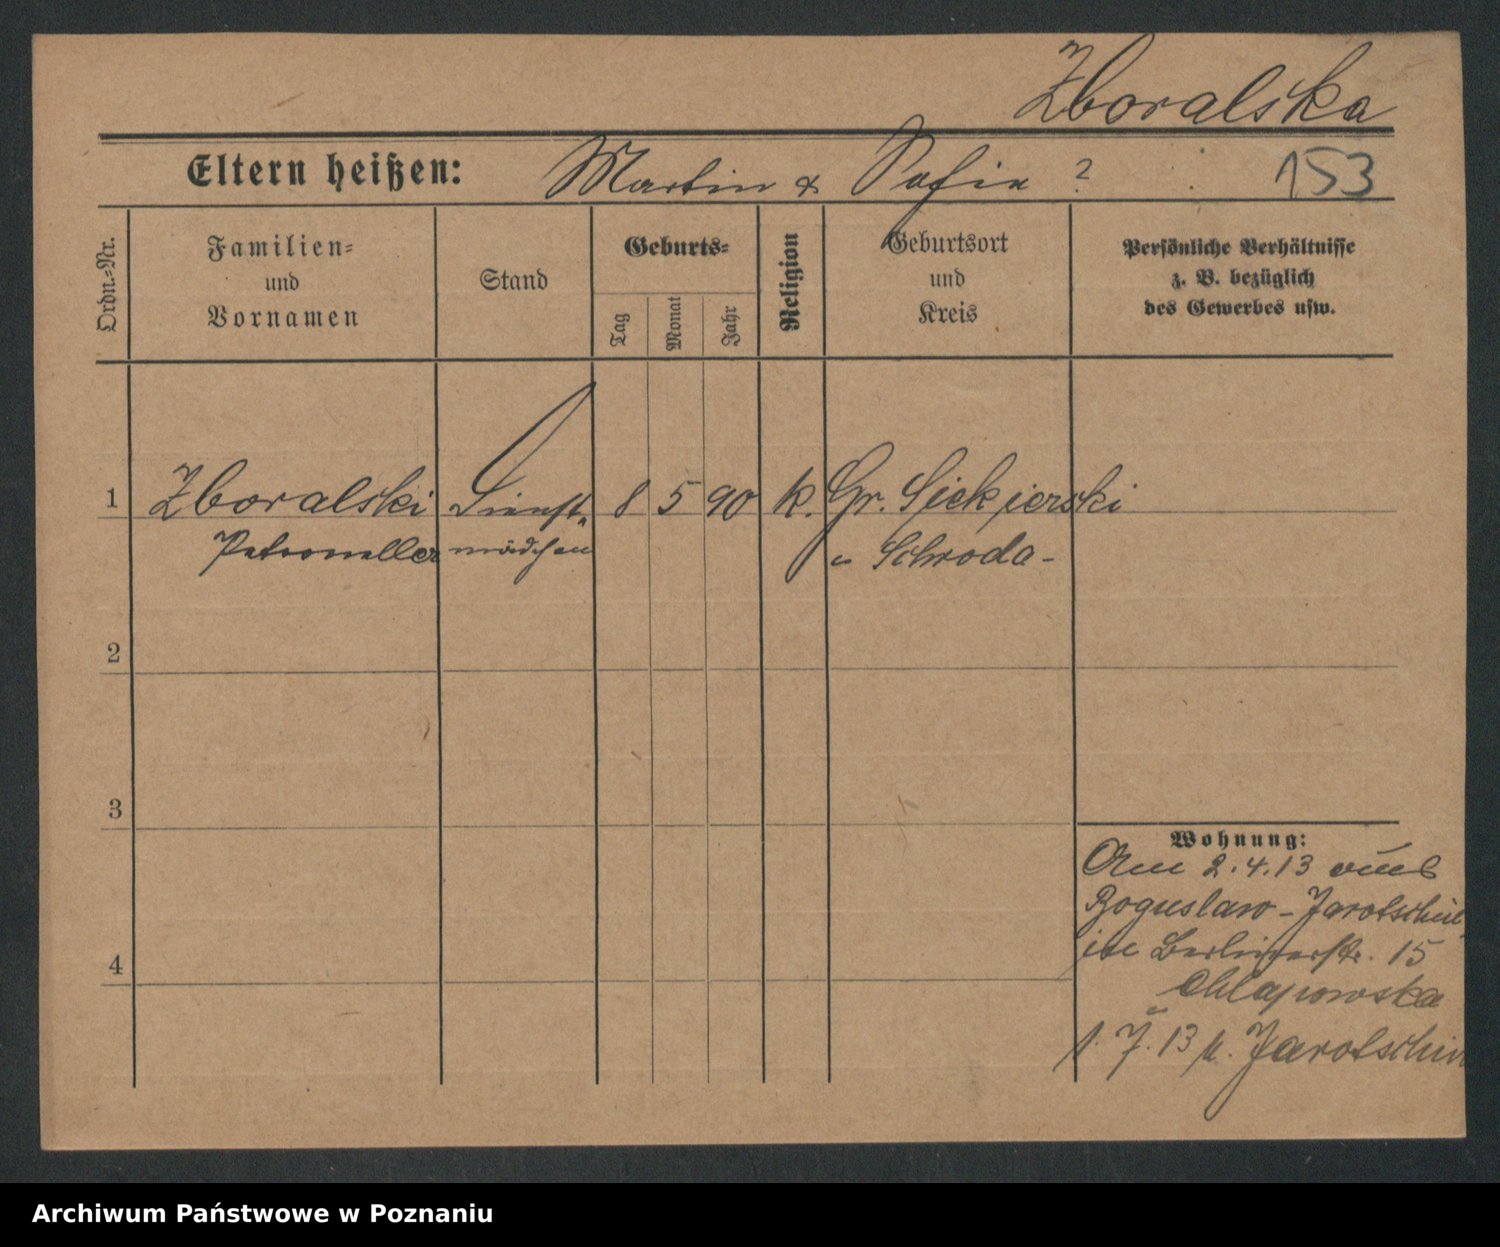 Zboralska
Eltern heißen: Martin & Sofia ? 153
Ordn.-Nr.
Familien-
und
Vornamen
Stand
Geburts-
Tag
Monat
Jahr
Religion
Geburtsort
und
Kreis
Persönliche Verhältnisse
z. B. bezüglich
des Gewerbes usw.
1 Zboralski Dienst- 8 5 90 k. Gr. Siekierski
Petronella mädchen Schroda
2
3
4
Wohnung:
Am 2.4.13 aus
Boguslaw - Jarotschin
in Berlinerstr. 15
Chlapowska
1. 7. 13 n. Jarotschin
Archiwum Państwowe w Poznaniu